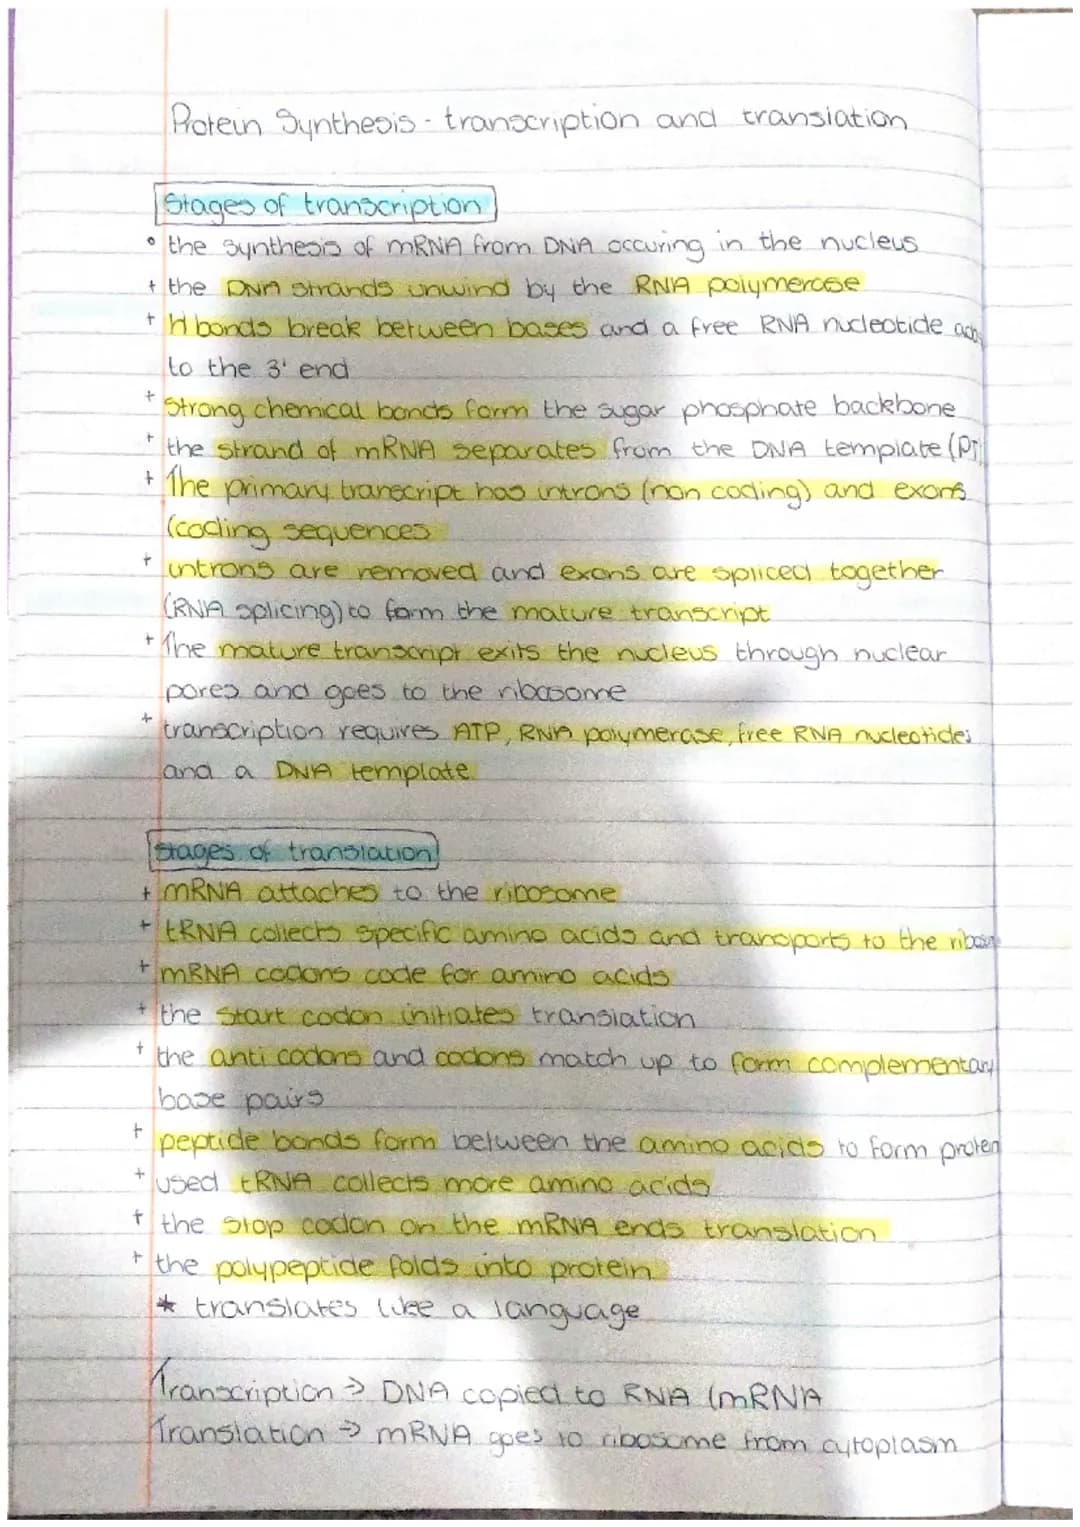 Protein Synthesis - transcription and translation
Stages of transcription
° the synthesis of mRNA from DNA occuring in the nucleus
+ the DNA strands unwind by the RNA polymerase
+ H bonds break between bases and a free RNA nucleotide
to the 3' end
+ Strong chemical bonds form the sugar phosphate backbone
+ the strand of mRNA separates from the DNA template
+ The primary transcript has introns (non coding) and exons
(coding sequences
+ introns are removed and exons are spliced together
(RNA splicing) to form the mature transcript
+ The mature transcript exits the nucleus through nuclear
pores and goes to the ribosome
+ transcription requires ATP, RNA polymerase, free RNA nucleotides
and a DNA template
Stages of translation
+ mRNA attaches to the ribosome
+ tRNA collects specific amino acids and transports to the
+ mRNA codons code for amino acids
+ the start codon initiates translation
+ the anti codons and codons match up to form complementary
base pairs
+ peptide bonds form between the amino acids to form protein
+ used tRNA collects more amino acids
+ the stop codon on the mRNA ends translation
+ the polypeptide folds into protein
* translates like a language
Transcription → DNA copied to RNA (mRNA
Translation → mRNA goes to ribosome from cytoplasm